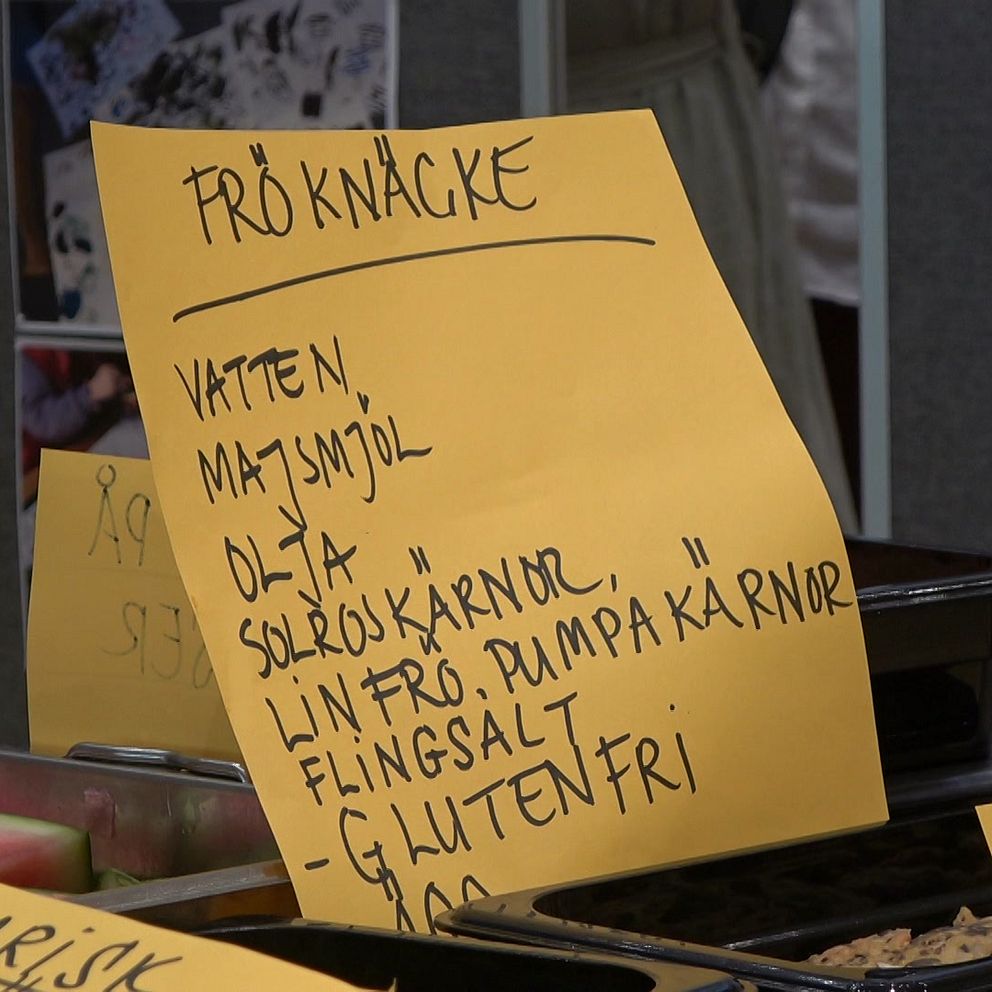 FRÖKNÄCKE
VATTEN,
MAJSMJÖL
OLJA
SOLROSKÄRNOR,
LINFRÖ. PUMPAKÄRNOR
FLINGSALT
-GLUTENFRI
PÅ